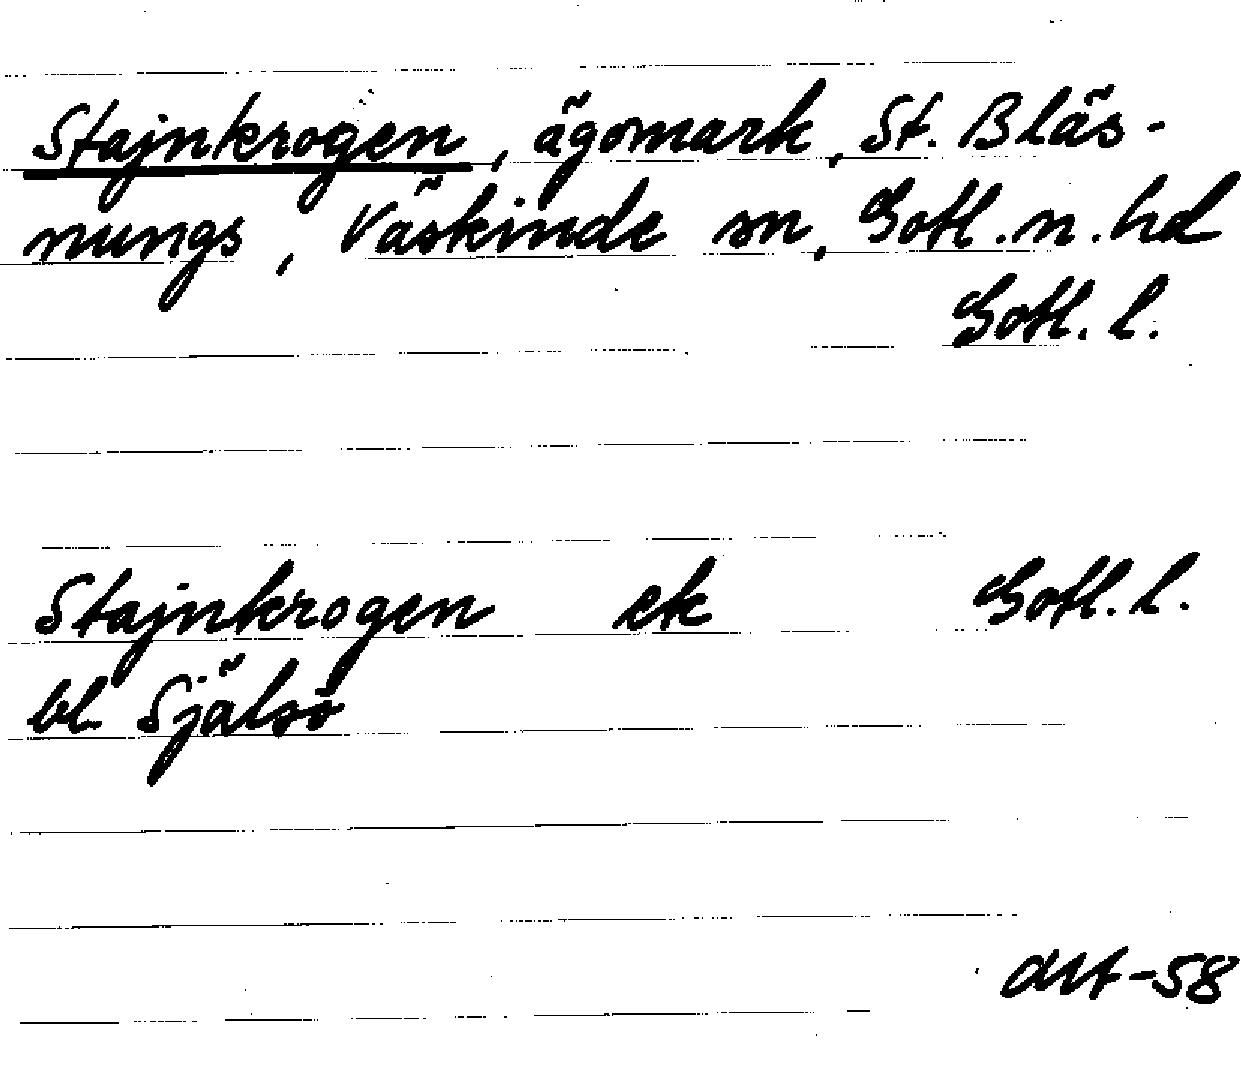 Stajnkrogen, ägomark, St. Bläs-
nungs, Väskinde sn, Gotl. n. hd
Gotl. l.
Stajnkrogen ek Gotl. l.
bl. Själsö
-58